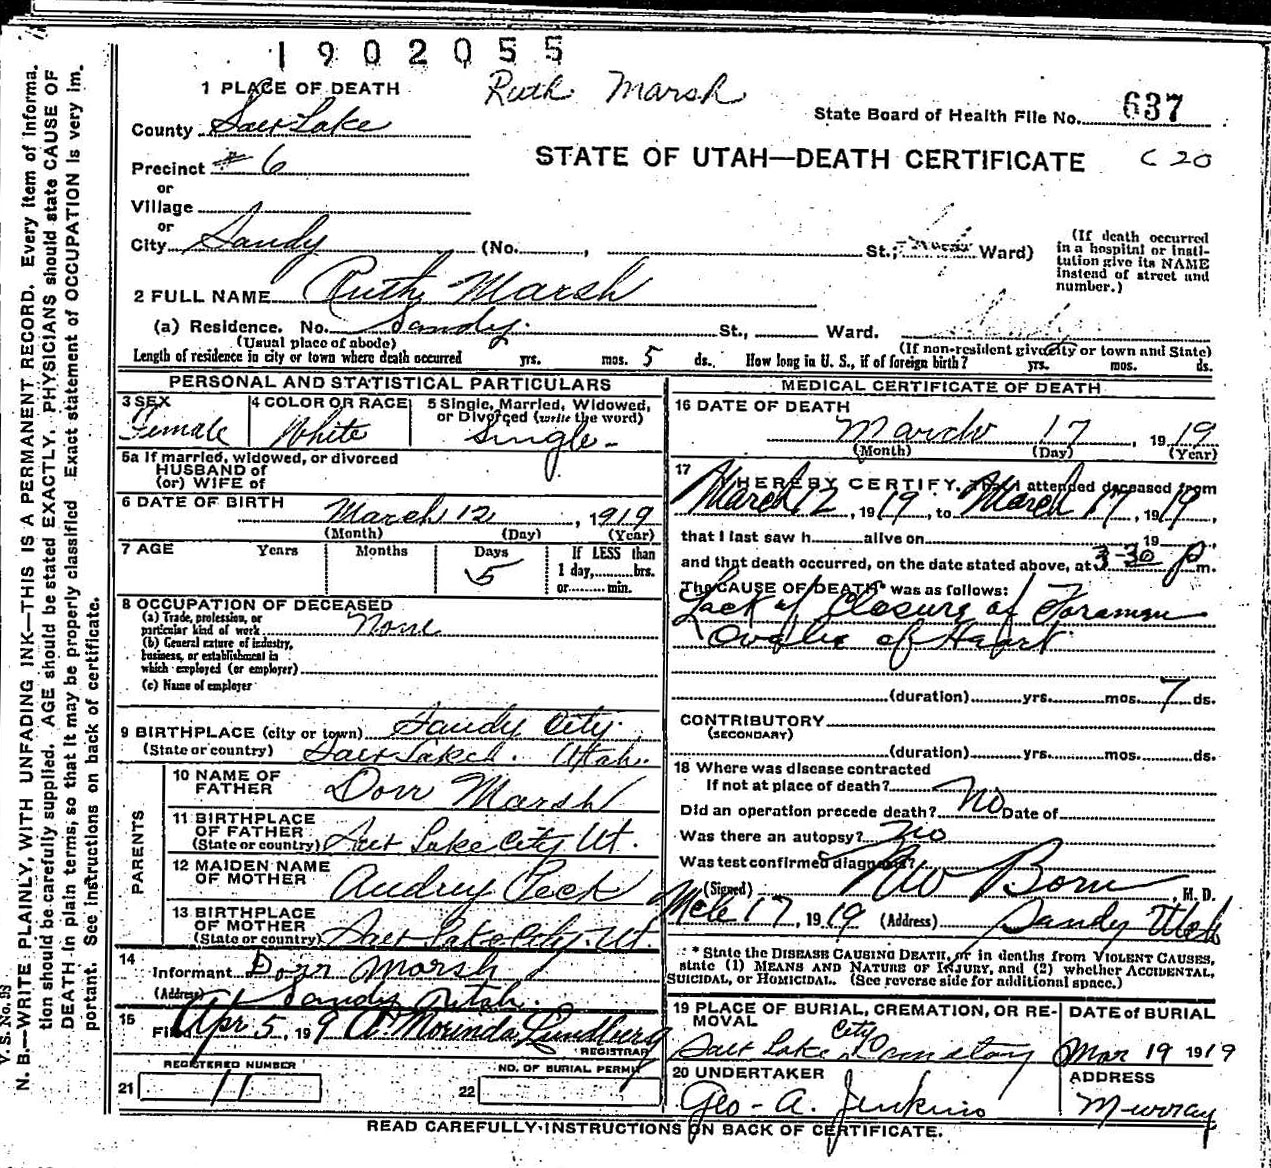 1902055
1 PLACE OF DEATH
Ruth Marsh
State Board of Health File No. 637
County Salt Lake
STATE OF UTAH—DEATH CERTIFICATE C 20
Precinct # 6
or
Village
or
City Sandy (No. , St.; Ward)
(If death occurred in a hospital or institution give its NAME instead of street and number.)
2 FULL NAME Ruth Marsh
(a) Residence. No. Sandy. St., Ward. Sandy
(Usual place of abode) (If non-resident give city or town and State)
Length of residence in city or town where death occurred yrs. mos. 5 ds. How long in U. S., if of foreign birth? yrs. mos. ds.
PERSONAL AND STATISTICAL PARTICULARS
3 SEX
Female
4 COLOR OR RACE
White
5 Single, Married, Widowed, or Divorced (write the word)
Single-
5a If married, widowed, or divorced
HUSBAND of
(or) WIFE of
6 DATE OF BIRTH
March 12, 1919
(Month) (Day) (Year)
7 AGE Years Months Days If LESS than
5 1 day, hrs.
or min.
8 OCCUPATION OF DECEASED
(a) Trade, profession, or
particular kind of work None
(b) General nature of industry,
business, or establishment in
which employed (or employer)
(c) Name of employer
9 BIRTHPLACE (city or town) Sandy City.
(State or country) Salt Lake. Utah.
PARENTS
10 NAME OF
FATHER Dorr Marsh
11 BIRTHPLACE
OF FATHER
(State or country) Salt Lake City Ut.
12 MAIDEN NAME
OF MOTHER Audrey Peck
13 BIRTHPLACE
OF MOTHER
(State or country) Salt Lake City. Ut.
14
Informant Dorr Marsh
(Address) Sandy Utah.
15
Filed Apr 5, 1919 A. Morinda Lundberg
REGISTRAR
REGISTERED NUMBER NO. OF BURIAL PERMIT
21 11 22
MEDICAL CERTIFICATE OF DEATH
16 DATE OF DEATH
March 17, 1919
(Month) (Day) (Year)
17
I HEREBY CERTIFY, That I attended deceased from
March 12, 1919, to March 17, 1919,
that I last saw h alive on 19
and that death occurred, on the date stated above, at 3-30 P m.
The CAUSE OF DEATH* was as follows:
Lack of Closure of Foramen
Ovalis of Heart
(duration) yrs. mos. 7 ds.
CONTRIBUTORY
(SECONDARY)
(duration) yrs. mos. ds.
18 Where was disease contracted
If not at place of death?
Did an operation precede death? No Date of
Was there an autopsy? No
Was test confirmed diagnosis?
(Signed) , M. D.
17, 1919 (Address) Sandy Utah
* State the DISEASE CAUSING DEATH, or in deaths from VIOLENT CAUSES,
state (1) MEANS AND NATURE OF INJURY, and (2) whether ACCIDENTAL,
SUICIDAL, or HOMICIDAL. (See reverse side for additional space.)
19 PLACE OF BURIAL, CREMATION, OR REMOVAL
Salt Lake City Cemetery
DATE of BURIAL
Mar 19 1919
20 UNDERTAKER
Geo-A. Jenkins
ADDRESS
Murray
READ CAREFULLY INSTRUCTIONS ON BACK OF CERTIFICATE.
V. S. No. 98
N. B.—WRITE PLAINLY, WITH UNFADING INK—THIS IS A PERMANENT RECORD. Every item of informa-
tion should be carefully supplied. AGE should be stated EXACTLY. PHYSICIANS should state CAUSE OF
DEATH in plain terms, so that it may be properly classified Exact statement of OCCUPATION is very im-
portant. See instructions on back of certificate.